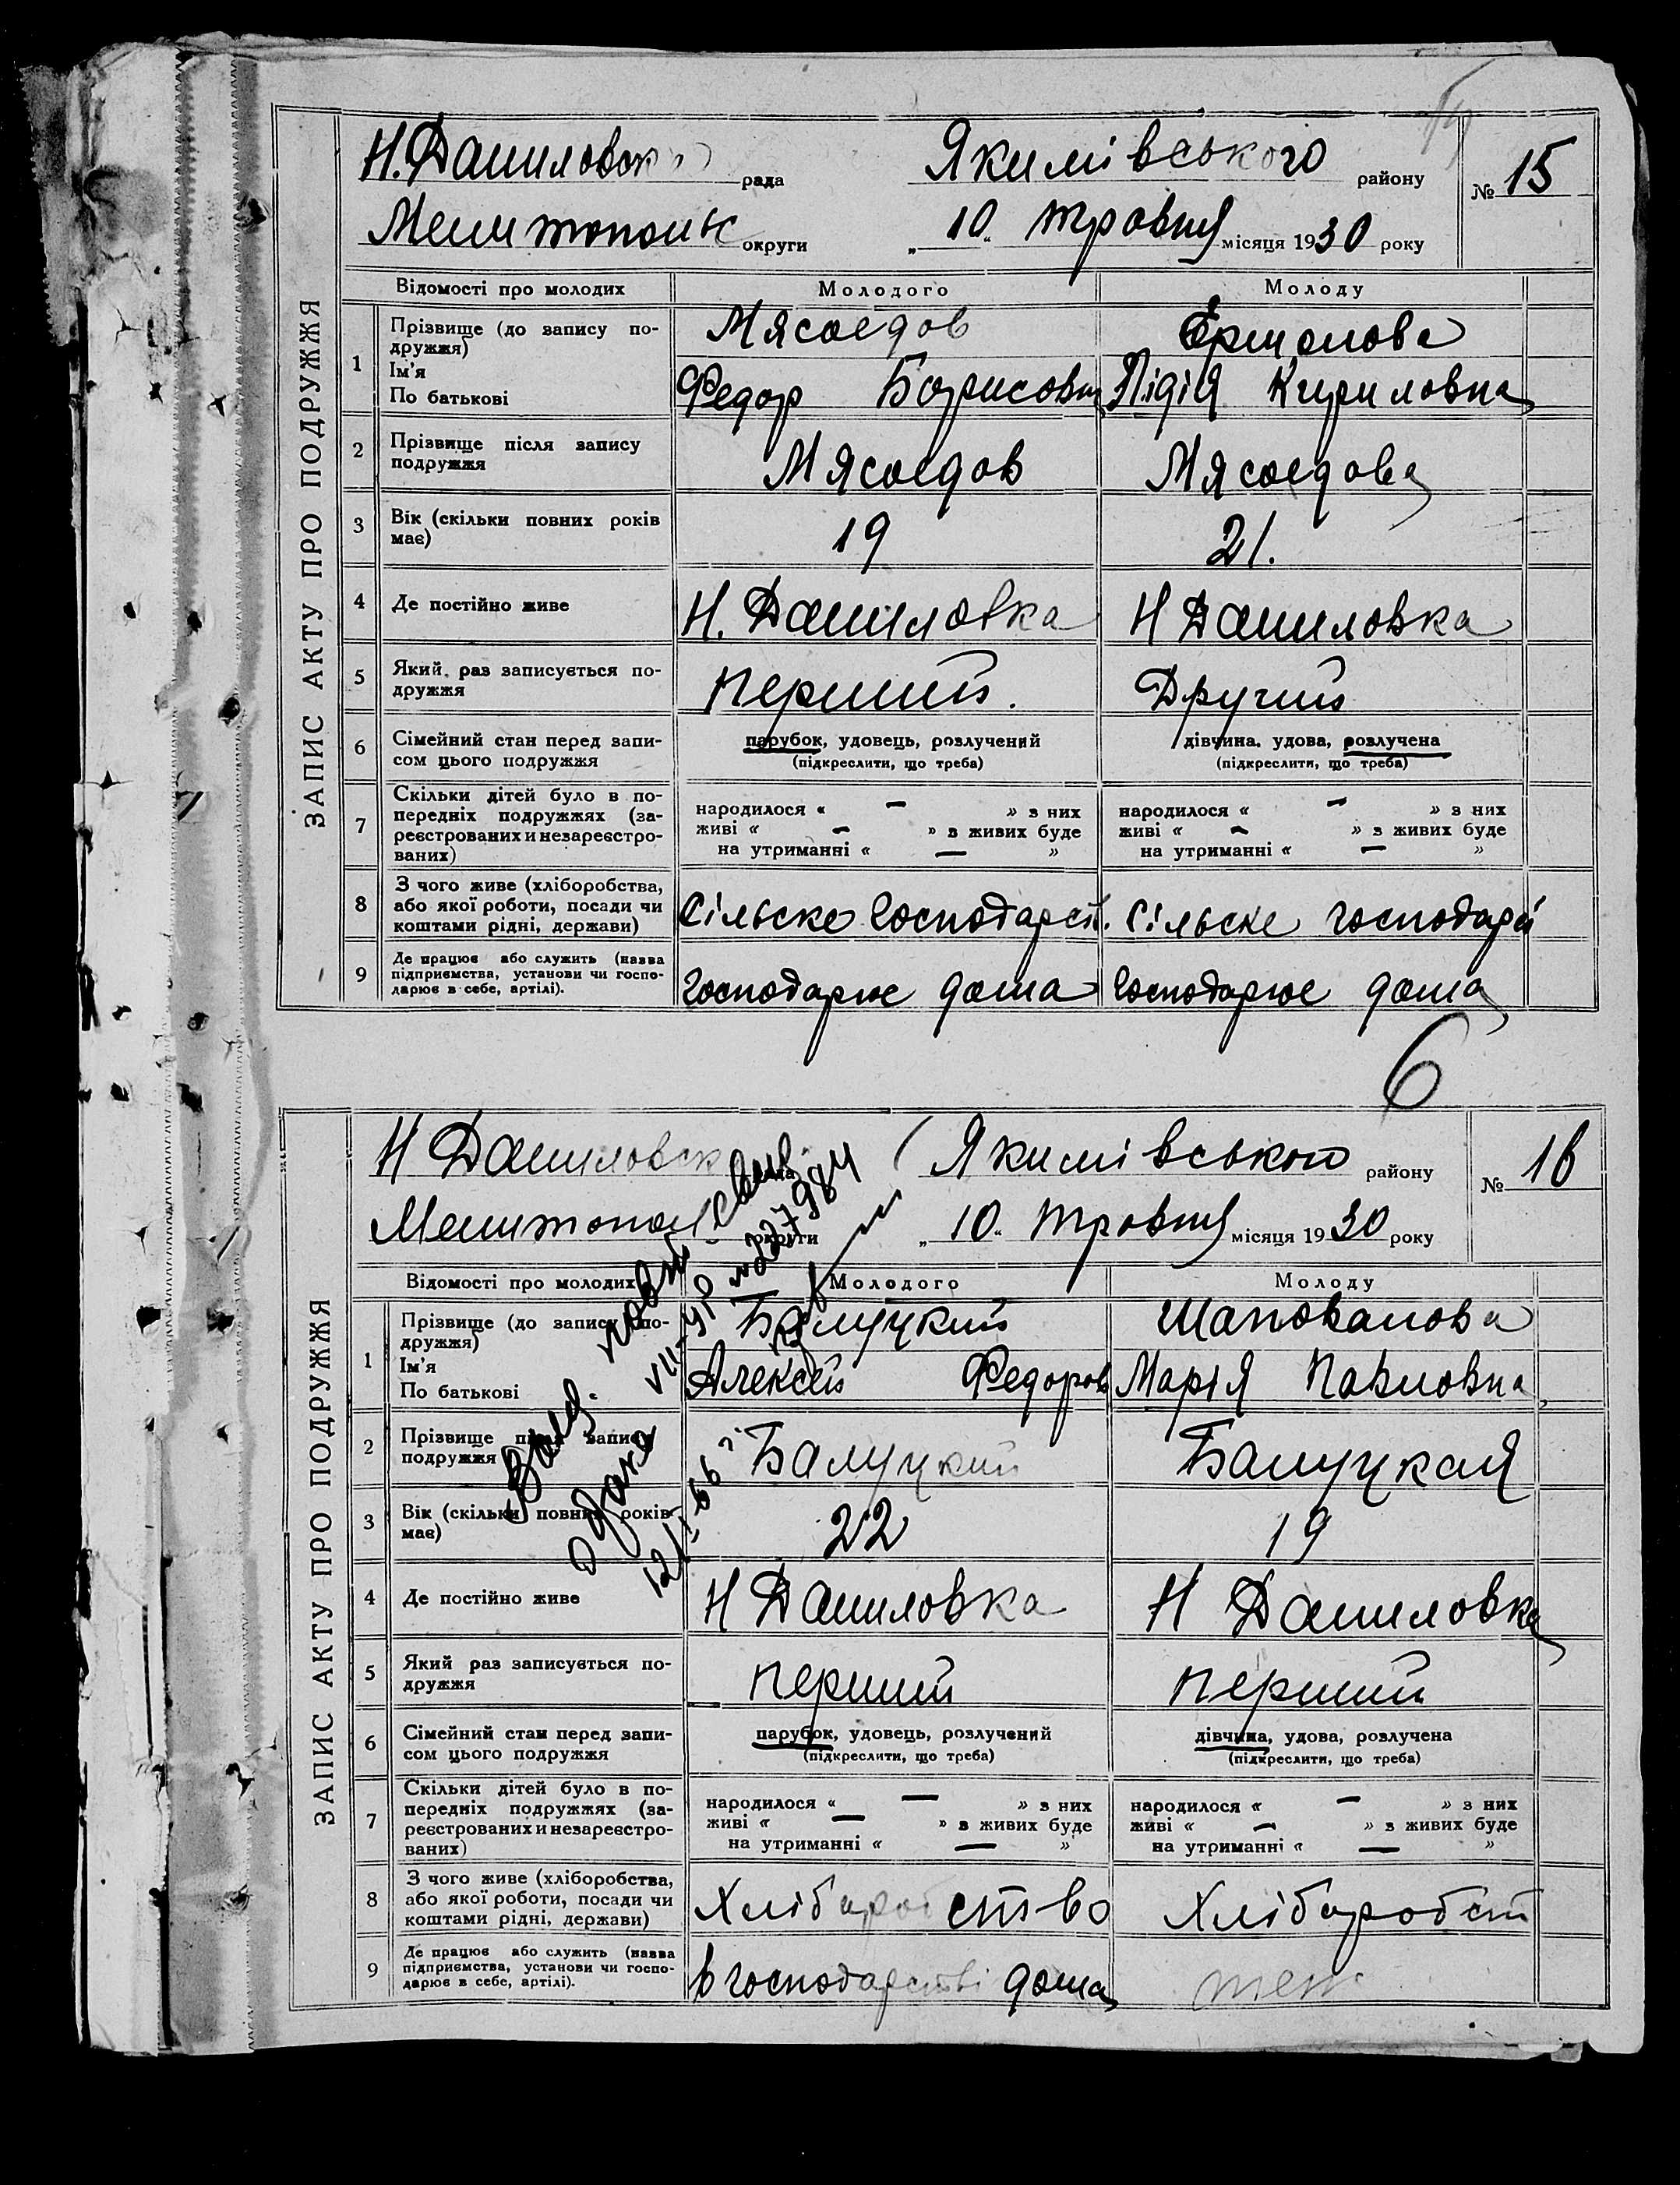 ЗАПИС АКТУ ПРО ПОДРУЖЖЯ
Н. Даниловськ рада Якимівського району № 15
Мелитопольс округи „ 10 “ травня місяця 1930 року
Відомості про молодих Молодого Молоду
1 Прізвище (до запису по-
дружжя) Мясоедов Ермолова
Ім'я
По батькові Федор Борисович Лідія Кириловна
2 Прізвище після запису
подружжя Мясоедов Мясоедова
3 Вік (скільки повних років
має) 19 21.
4 Де постійно живе Н. Даниловка Н Даниловка
5 Який раз записується по-
дружжя перший. Другий
6 Сімейний стан перед запи-
сом цього подружжя
парубок, удовець, розлучений дівчина, удова, розлучена
(підкреслити, що треба) (підкреслити, що треба)
7 Скільки дітей було в по-
передніх подружжях (за-
реєстрованих и незареєстро-
ваних)
народилося « — » з них народилося « — » з них
живі « — » з живих буде живі « — » з живих буде
на утриманні « — » на утриманні « — »
8 З чого живе (хліборобства,
або якої роботи, посади чи
коштами рідні, держави) Сільске господарст. Сільске господарст
9 Де працює або служить (назва
підприємства, установи чи госпо-
дарює в себе, артілі). Господарює дома Господарює дома
6
ЗАПИС АКТУ ПРО ПОДРУЖЖЯ
Н Даниловск рада Якимівського району № 16
Мелитопол округи „ 10 “ травня місяця 1930 року
Відомості про молодих Молодого Молоду
1 Прізвище (до запису по-
дружжя) Балуцкий Шаповалова
Ім'я
По батькові Алексей Федоров Марія Павловна
2 Прізвище після запису
подружжя Балуцкий Балуцкая
3 Вік (скільки повних років
має) 22 19
4 Де постійно живе Н Даниловка Н Даниловка
5 Який раз записується по-
дружжя перший перший
6 Сімейний стан перед запи-
сом цього подружжя
парубок, удовець, розлучений дівчина, удова, розлучена
(підкреслити, що треба) (підкреслити, що треба)
7 Скільки дітей було в по-
передніх подружжях (за-
реєстрованих и незареєстро-
ваних)
народилося « — » з них народилося « — » з них
живі « — » з живих буде живі « — » з живих буде
на утриманні « — » на утриманні « — »
8 З чого живе (хліборобства,
або якої роботи, посади чи
коштами рідні, держави) Хліборобство Хліборобст
9 Де працює або служить (назва
підприємства, установи чи госпо-
дарює в себе, артілі). в господарстві дома теж
о браке VII-УР № 227984